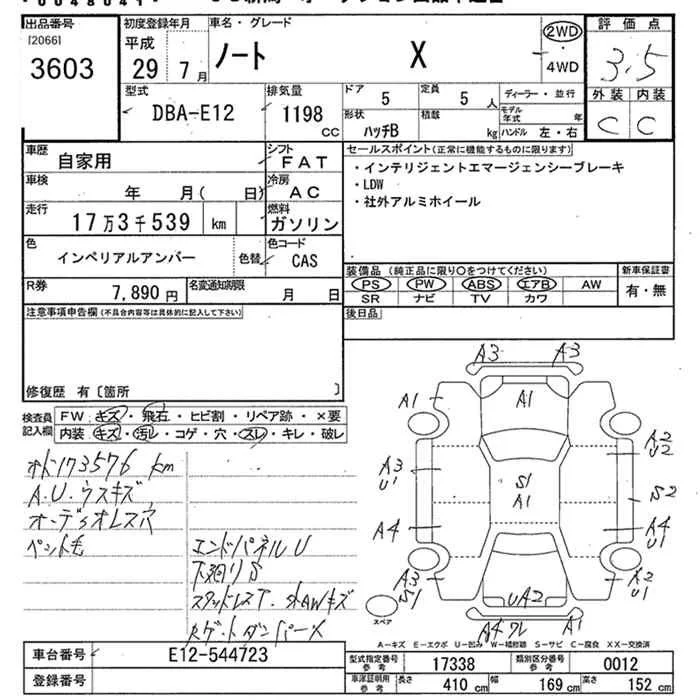 出品番号
[2066]
3603
初度登録年月
平成
29年 7月
車名・グレード
ノート X
2WD
・
4WD
評価点
3.5
外装 内装
C C
型式
DBA-E12
排気量
1198 CC
ドア 5
定員 5人
形状 ハッチB
積載 kg
ディーラー・並行
モデル年式 年
ハンドル 左・右
車歴 自家用
シフト FAT
車検 年 月( 日)
冷房 AC
走行 17万3千539 km
燃料 ガソリン
色 インペリアルアンバー 色替
色コード CAS
R券 7,890円
名変通知期限 月 日
セールスポイント(正常に機能するものに限ります)
・インテリジェントエマージェンシーブレーキ
・LDW
・社外アルミホイール
装備品(純正品に限り○をつけてください)
PS PW ABS エアB AW
SR ナビ TV カワ
新車保証書
有・無
後日品
注意事項申告欄(不具合内容等は具体的に記入して下さい)
修復歴 有〔箇所 〕
検査員記入欄
FW キズ・飛石・ヒビ割・リペア跡・×要
内装 キズ・汚レ・コゲ・穴・スレ・キレ・破レ
オド173576 km
A.U.ウスキズ
オーディオレス穴
ペット毛
エンドパネルU
下廻りS
スタッドレスT. 外AWキズ
Rゲートダンパー×
A3 A3
A1 A1
A2
U2
A3
U1
S1
A1
S2
A4 A4
U1
A3
S1
A2
U1
UA2
A4 ワレ A1
スペア
A-キズ E-エクボ U-凹み W-補修跡 S-サビ C-腐食 XX-交換済
車台番号 E12-544723
登録番号
型式指定番号 参考 17338
類別区分番号 参考 0012
車庫証明用 参考 長さ 410 cm 幅 169 cm 高さ 152 cm